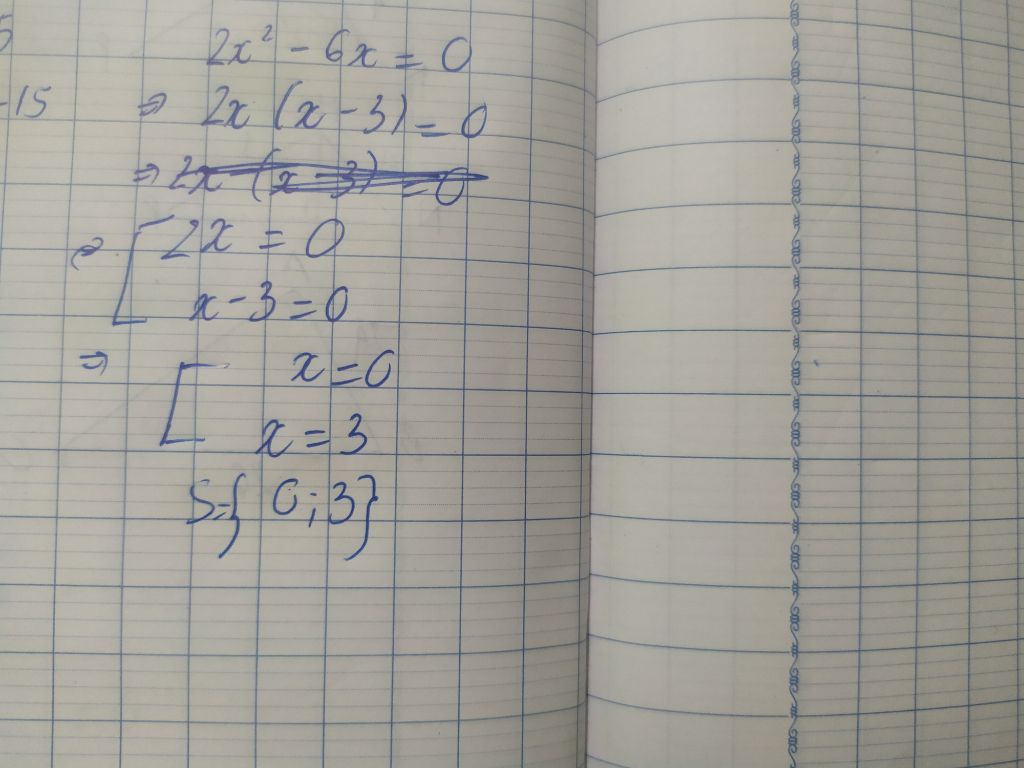 2x² - 6x = 0
-15
⇒ 2x (x - 3) = 0
⇒ 2x (x - 3) = 0
⇒ [ 2x = 0
x - 3 = 0
⇒ [ x = 0
x = 3
S={ 0 ; 3}